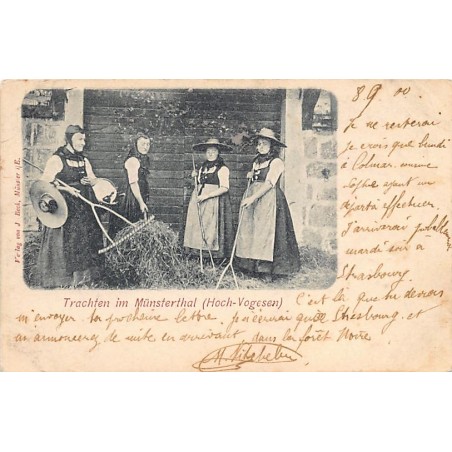 8 9 00
Je ne resterai
je crois que lundi
à Colmar, mimi
Sophie ayant un
départ à effectuer
J'arriverai probablement
mardi soir à
Strasbourg.
Verlag von J. Beck, Münster i/E.
Trachten im Münsterthal (Hoch-Vogesen)
C'est là que tu devrais
m'envoyer ta prochaine lettre, j'écrirai que Strasbourg et
un de suite en arrivant dans la forêt Noire